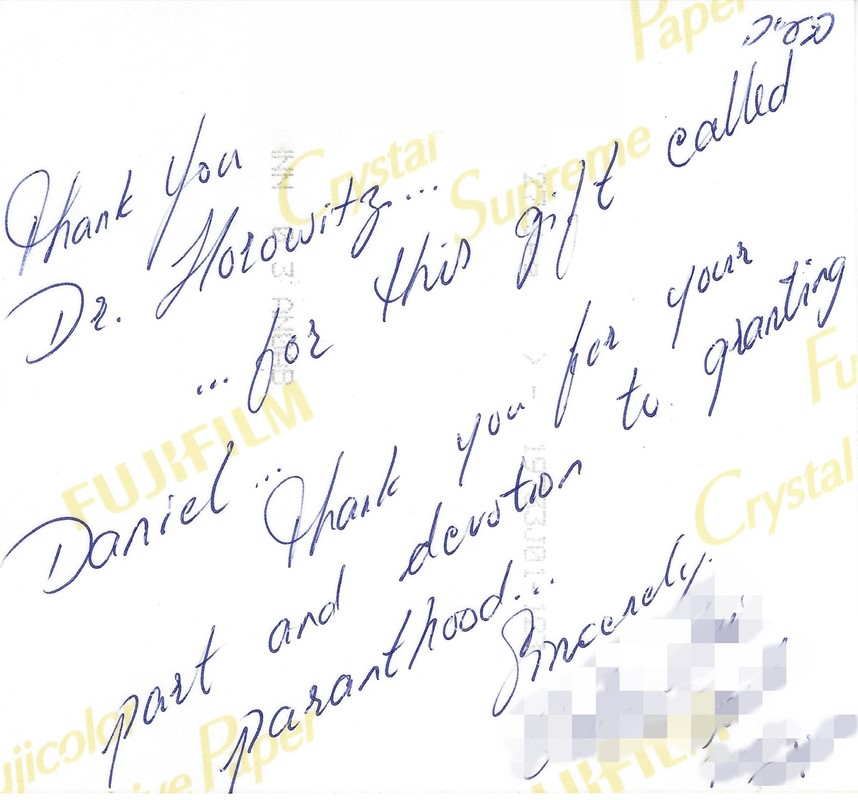 Paper
Crystal
Supreme
Thank you
Dr. Horowitz...
... for this gift called
Daniel... Thank you for your
part and devotion to granting
paranthood...
Sincerely.
FUJIFILM
Fu
Crystal
ujicolor
ive Paper
FUJIFILM